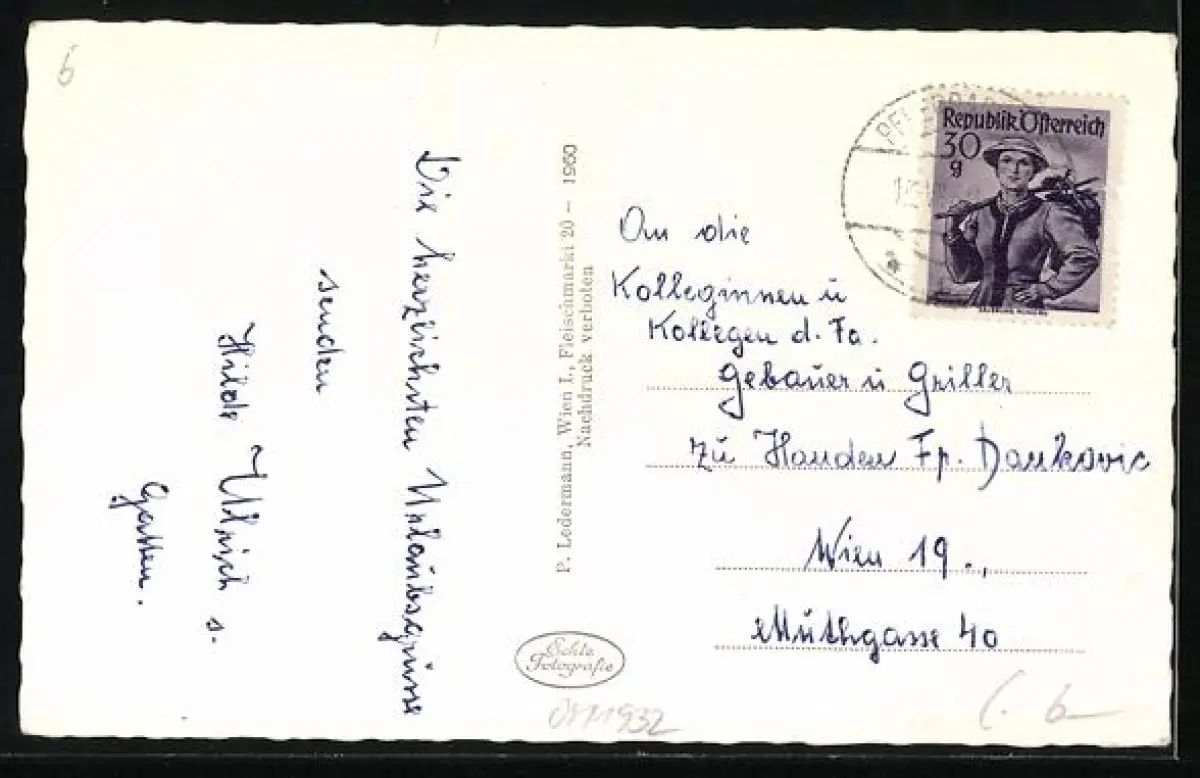 b
Die herzlichsten Urlaubsgrüsse
senden
Hilde Ulrich s.
Gatten.
P. Ledermann, Wien I., Fleischmarkt 20 – 1960
Nachdruck verboten
Echte
Fotografie
Republik Österreich
30
g
An die
Kolleginnen u
Kollegen d. Fa.
Gebauer u Griller
zu Handen Fr. Dankovic
Wien 19.,
Muthgasse 40
1932